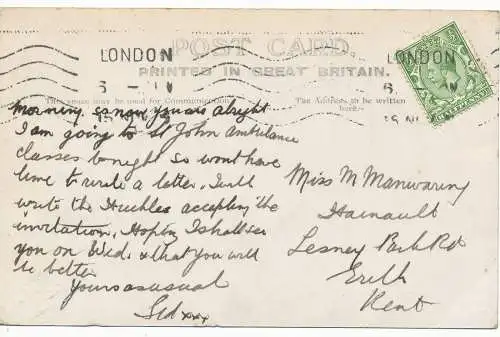 POST CARD
PRINTED IN GREAT BRITAIN.
LONDON
LONDON
This space may be used for Communication
The Address to be written here.
HALFPENNY
Morning, so now you are alright
I am going to St John Ambulance
classes tonight so wont have
time to write a letter. I will
write the accepting the
invitation. Hoping I shall see
you on Wed. & that you will
be better
Yours as usual
Sid xxx
Miss M Manwaring
Hainault
Lesney Park Rd
Erith
Kent